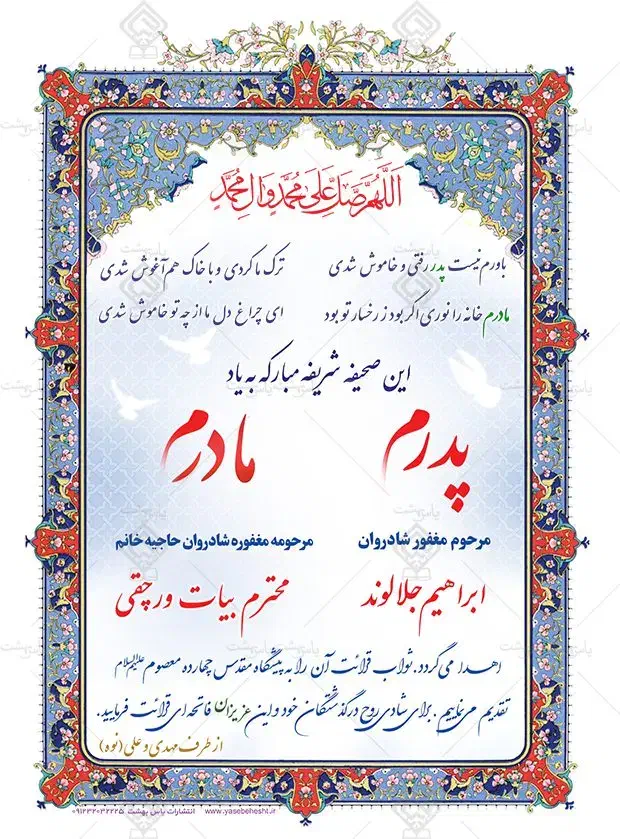 اللهم صل علی محمد و آل محمد
باورم نیست پدر رفتی و خاموش شدی ترک ما کردی و با خاک هم آغوش شدی
مادرم خانه را نوری اگر بود ز رخسار تو بود ای چراغ دل ما از چه تو خاموش شدی
این صحیفه شریفه مبارکه به یاد
پدرم مادرم
مرحوم مغفور شادروان مرحومه مغفوره شادروان حاجیه خانم
ابراهیم جلالوند محترم بیات ورچقی
اهدا می گردد. ثواب قرائت آن را به پیشگاه مقدس چهارده معصوم علیهم السلام
تقدیم می نماییم. برای شادی روح درگذشتگان خود و این عزیزان فاتحه ای قرائت فرمایید.
از طرف مهدی و علی (نوه)
www.yasebehesht.ir انتشارات یاس بهشت ۰۹۱۲۳۲۰۳۲۲۲۵
یاس بهشت